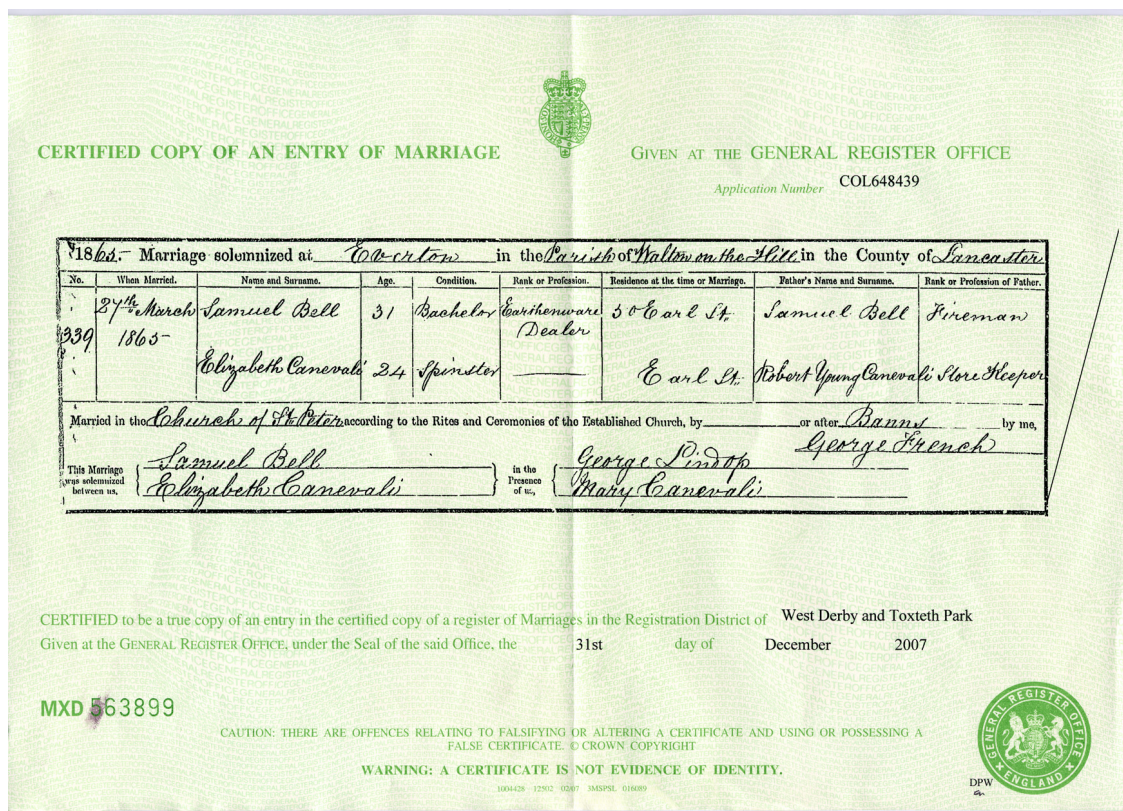 CERTIFIED COPY OF AN ENTRY OF MARRIAGE
GIVEN AT THE GENERAL REGISTER OFFICE
Application Number COL648439
1865. Marriage solemnized at Everton in the Parish of Walton on the Hill in the County of Lancaster
No. When Married. Name and Surname. Age. Condition. Rank or Profession. Residence at the time of Marriage. Father's Name and Surname. Rank or Profession of Father.
27th March Samuel Bell 31 Bachelor Earthenware 50 Earl St. Samuel Bell Fireman
339 1865 Dealer
Elizabeth Canevali 24 Spinster Earl St. Robert Young Canevali Store Keeper
Married in the Church of St Peter according to the Rites and Ceremonies of the Established Church, by or after Banns by me,
George French
This Marriage was solemnized between us, Samuel Bell in the Presence of us, George Lindop
Elizabeth Canevali Mary Canevali
CERTIFIED to be a true copy of an entry in the certified copy of a register of Marriages in the Registration District of West Derby and Toxteth Park
Given at the GENERAL REGISTER OFFICE, under the Seal of the said Office, the 31st day of December 2007
MXD 563899
CAUTION: THERE ARE OFFENCES RELATING TO FALSIFYING OR ALTERING A CERTIFICATE AND USING OR POSSESSING A
FALSE CERTIFICATE. © CROWN COPYRIGHT
WARNING: A CERTIFICATE IS NOT EVIDENCE OF IDENTITY.
1004428 12502 02/07 3MSPSL 016089
GENERAL REGISTER OFFICE
ENGLAND
DPW